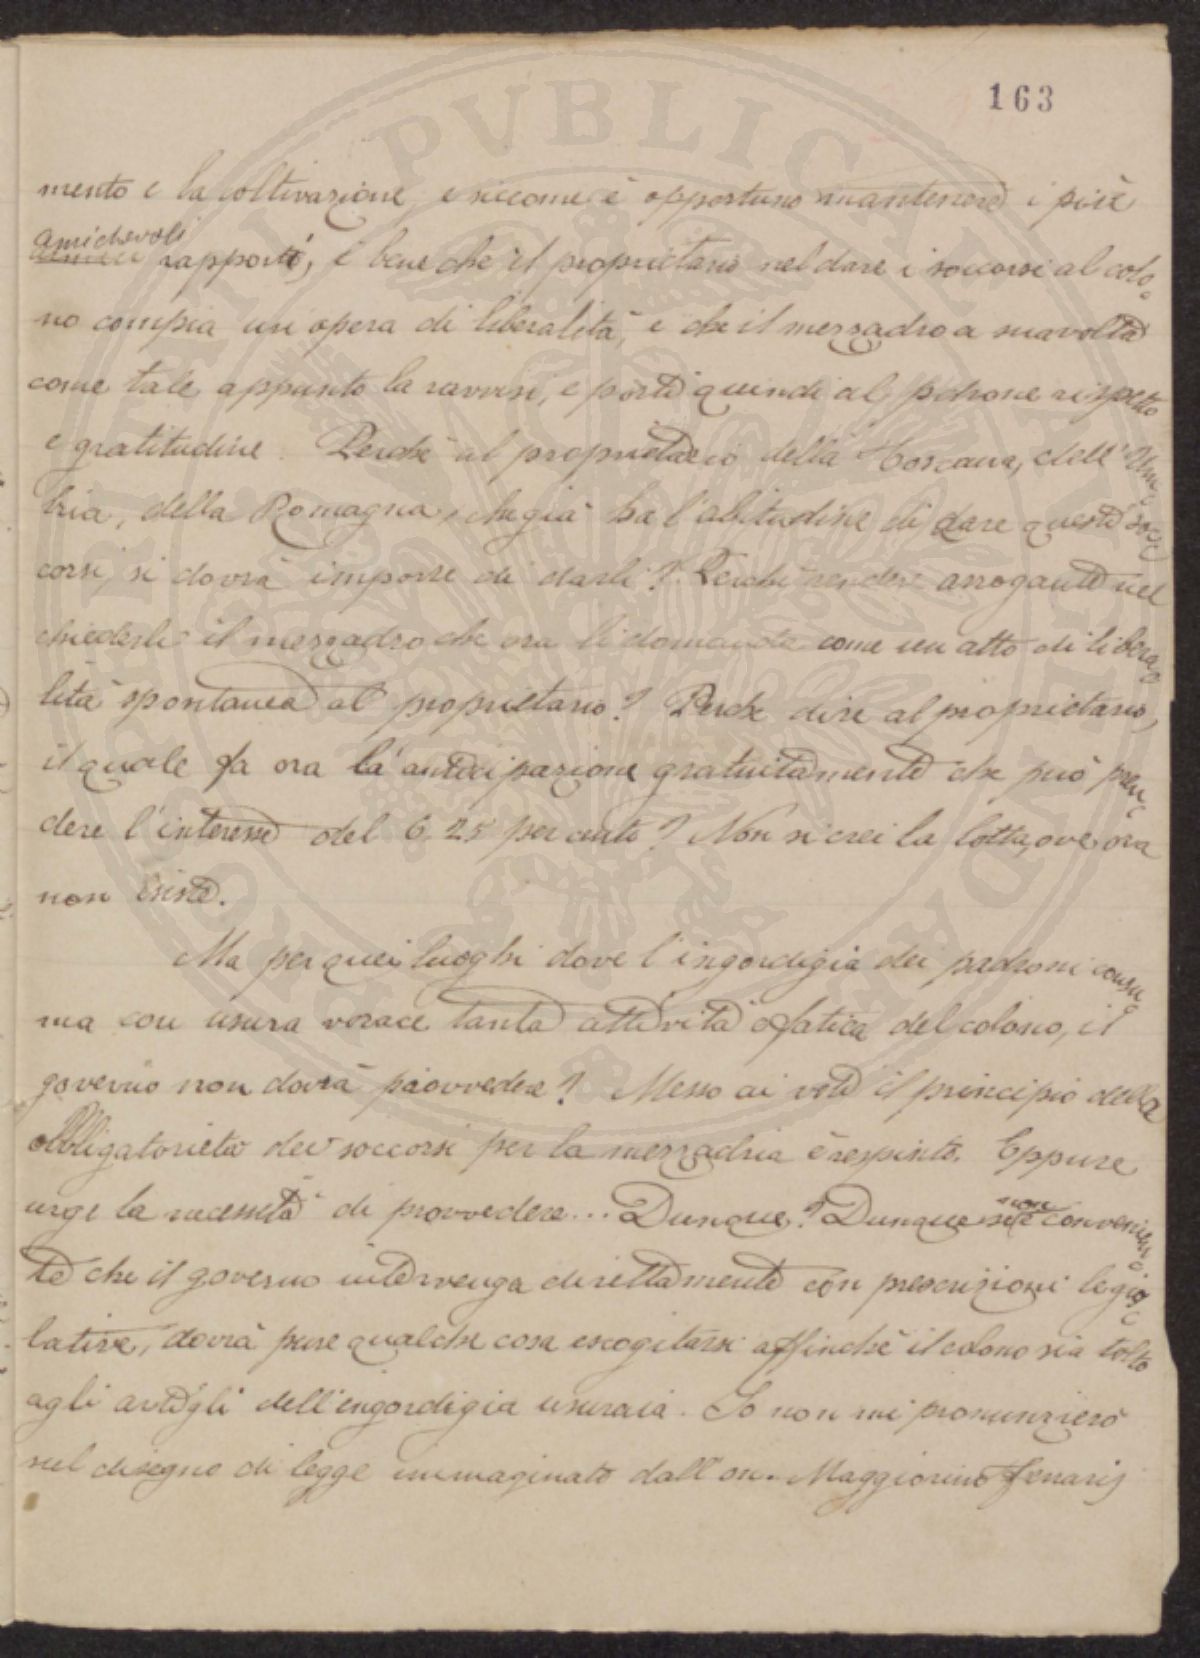 163
mento e la coltivazione, e siccome è opportuno mantenere i più
amichevoli
rapporti, è bene che il proprietario nel dare i soccorsi al colo=
no compia un'opera di liberalità, e che il mezzadro a sua volta
come tale appunto la ravvisi, e porti quindi al padrone rispetto
e gratitudine. Perchè al proprietario della Toscana, dell'Um=
bria, della Romagna, che già ha l'abitudine di dare questi soc=
corsi, si dovrà imporre di darli? Perchè rendere arrogante nel
chiederli il mezzadro che ora li domanda come un atto di libera=
lità spontanea al proprietario? Perchè dire al proprietario,
il quale fa ora la anticipazione gratuitamente che può pren=
dere l'interesse del 6.25 per cento? Non si crei la lotta, ove ora
non esiste.
Ma per quei luoghi dove l'ingordigia dei padroni consu=
ma con usura vorace tanta attività e fatica del colono, il
governo non dovrà provvedere? Messo ai voti il principio della
obbligatorietà dei soccorsi per la mezzadria è respinto. Eppure
urge la necessità di provvedere... Dunque? Dunque se non è convenien=
te che il governo intervenga direttamente con prescrizioni legis=
lative, dovrà pure qualche cosa escogitarsi affinchè il colono sia tolto
agli artigli dell'ingordigia usuraia. Io non mi pronunzierò
sul disegno di legge immaginato dall'on. Maggiorino Ferraris